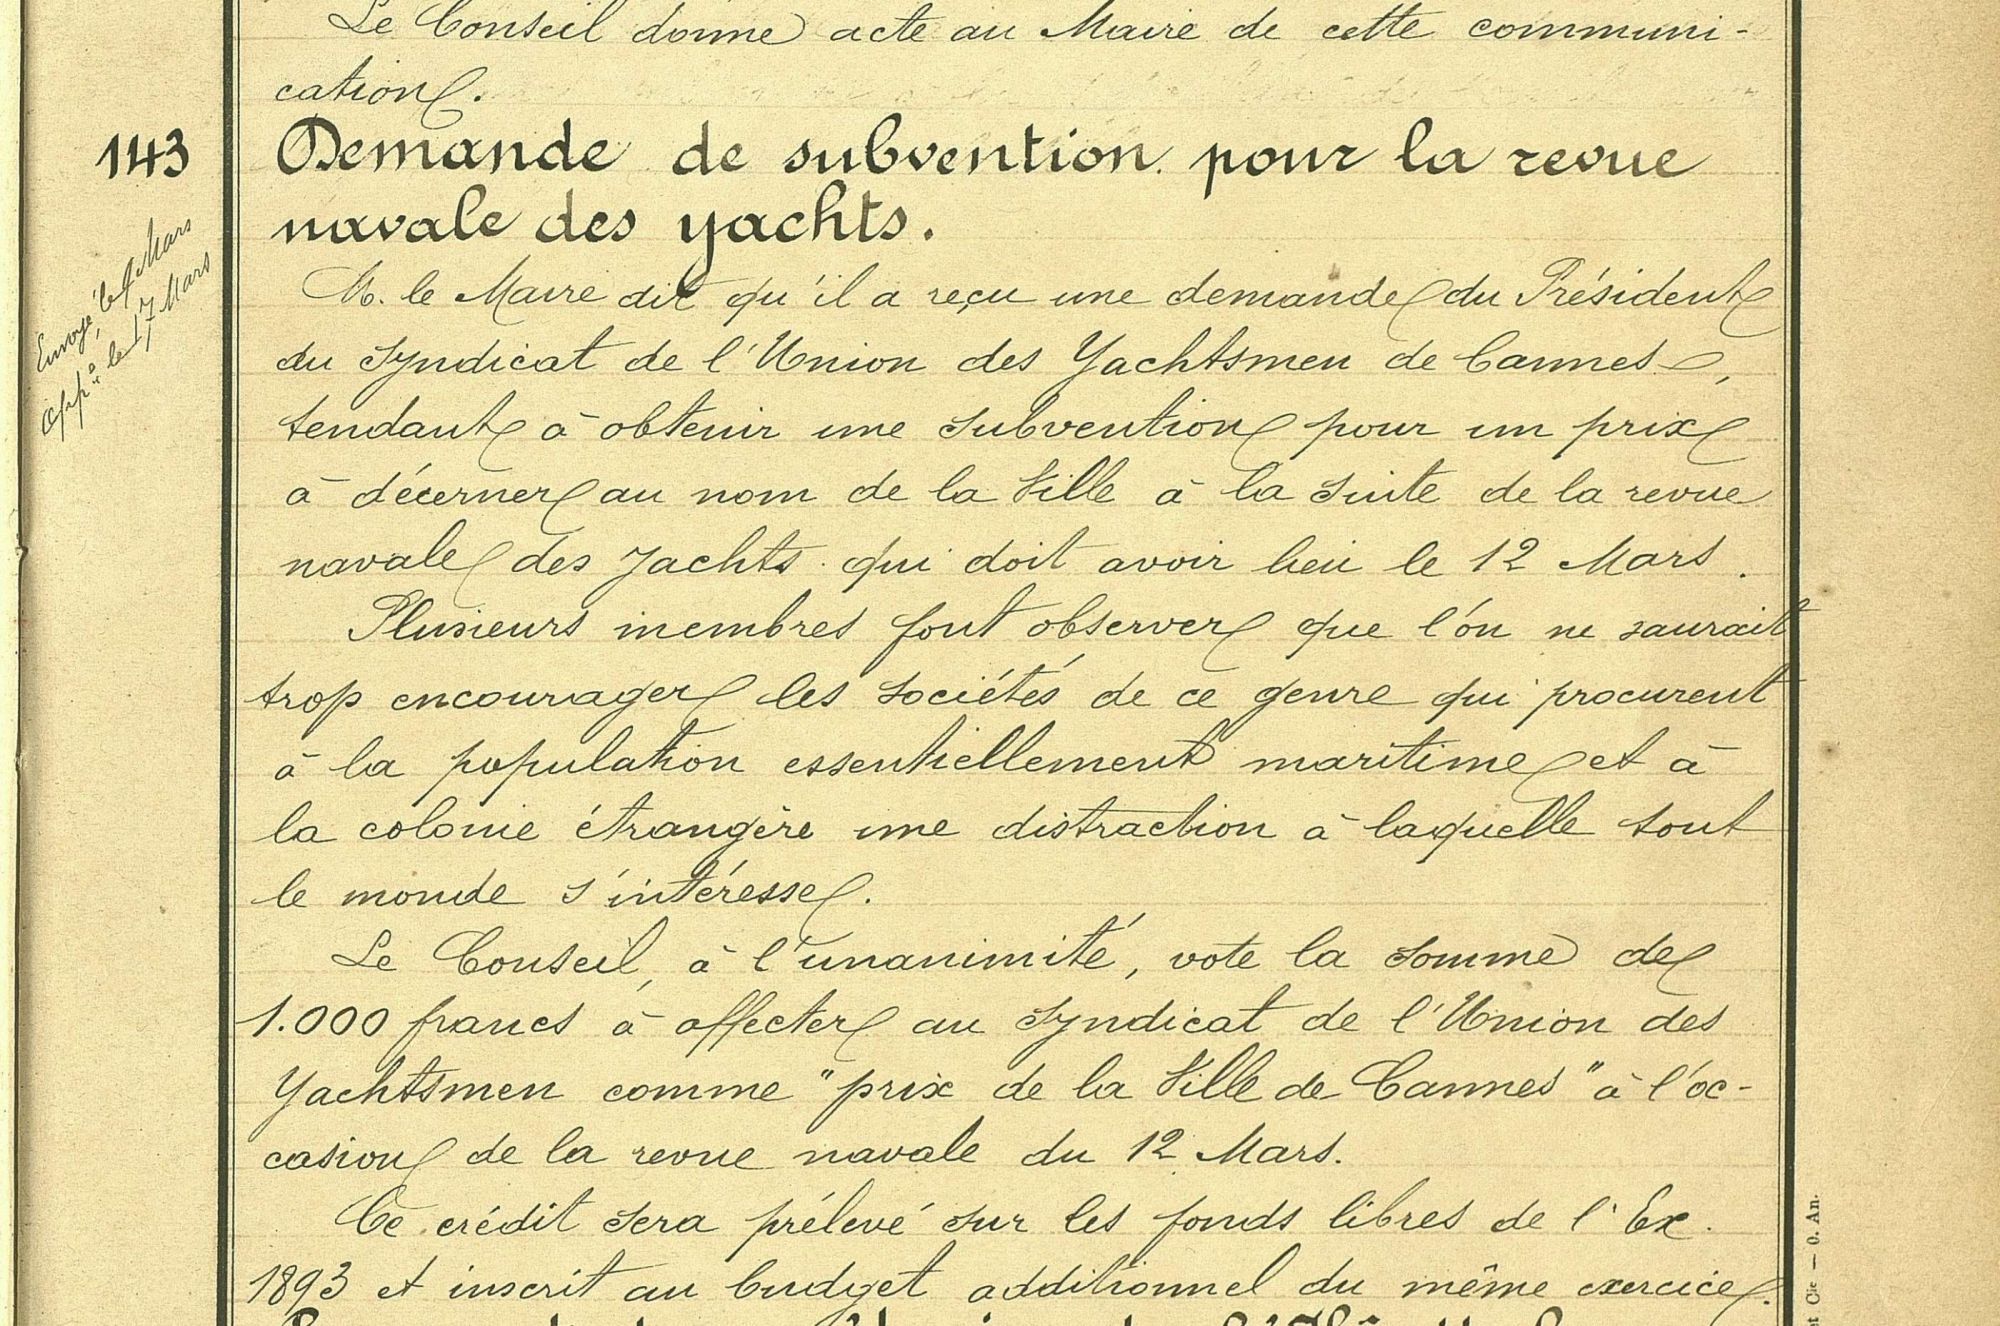 Le Conseil donne acte au Maire de cette communi-
cation.
143
Demande de subvention pour la revue
navale des yachts.
Envoyé le 4 Mars
Appé le 17 Mars
M. le Maire dit qu'il a reçu une demande du Président
du Syndicat de l'Union des Yachtsmen de Cannes,
tendant à obtenir une subvention pour un prix
à décerner au nom de la Ville à la suite de la revue
navale des Yachts qui doit avoir lieu le 12 Mars.
Plusieurs membres font observer que l'on ne saurait
trop encourager les sociétés de ce genre qui procurent
à la population essentiellement maritime et à
la colonie étrangère une distraction à laquelle tout
le monde s'intéresse.
Le Conseil, à l'unanimité, vote la somme de
1.000 francs à affecter au Syndicat de l'Union des
Yachtsmen comme "prix de la Ville de Cannes" à l'oc-
casion de la revue navale du 12 Mars.
Ce crédit sera prélevé sur les fonds libres de l'Ex.
1893 et inscrit au budget additionnel du même exercice.
et Cie — 0. An.